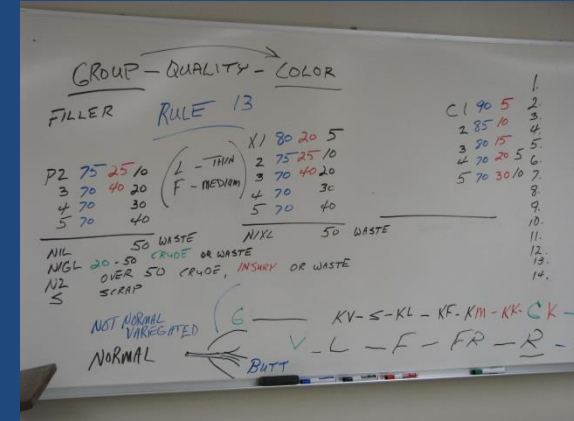 GROUP - QUALITY - COLOR
FILLER RULE 13
P2 75 25 10
3 70 40 20
4 70 30
5 70 40
L - THIN
F - MEDIUM
X1 80 20 5
2 75 25 10
3 70 40 20
4 70 30
5 70 40
C1 90 5
2 85 10
3 80 15
4 70 20 5
5 70 30 10
1.
2.
3.
4.
5.
6.
7.
8.
9.
10.
11.
12.
13.
14.
N1L 50 WASTE
N1XL 50 WASTE
N1GL 20-50 CRUDE OR WASTE
N2 OVER 50 CRUDE, INJURY OR WASTE
S SCRAP
NOT NORMAL
VARIEGATED
G KV-S-KL-KF-KM-KK-GK-
NORMAL
V-L-F-FR-R-
BUTT